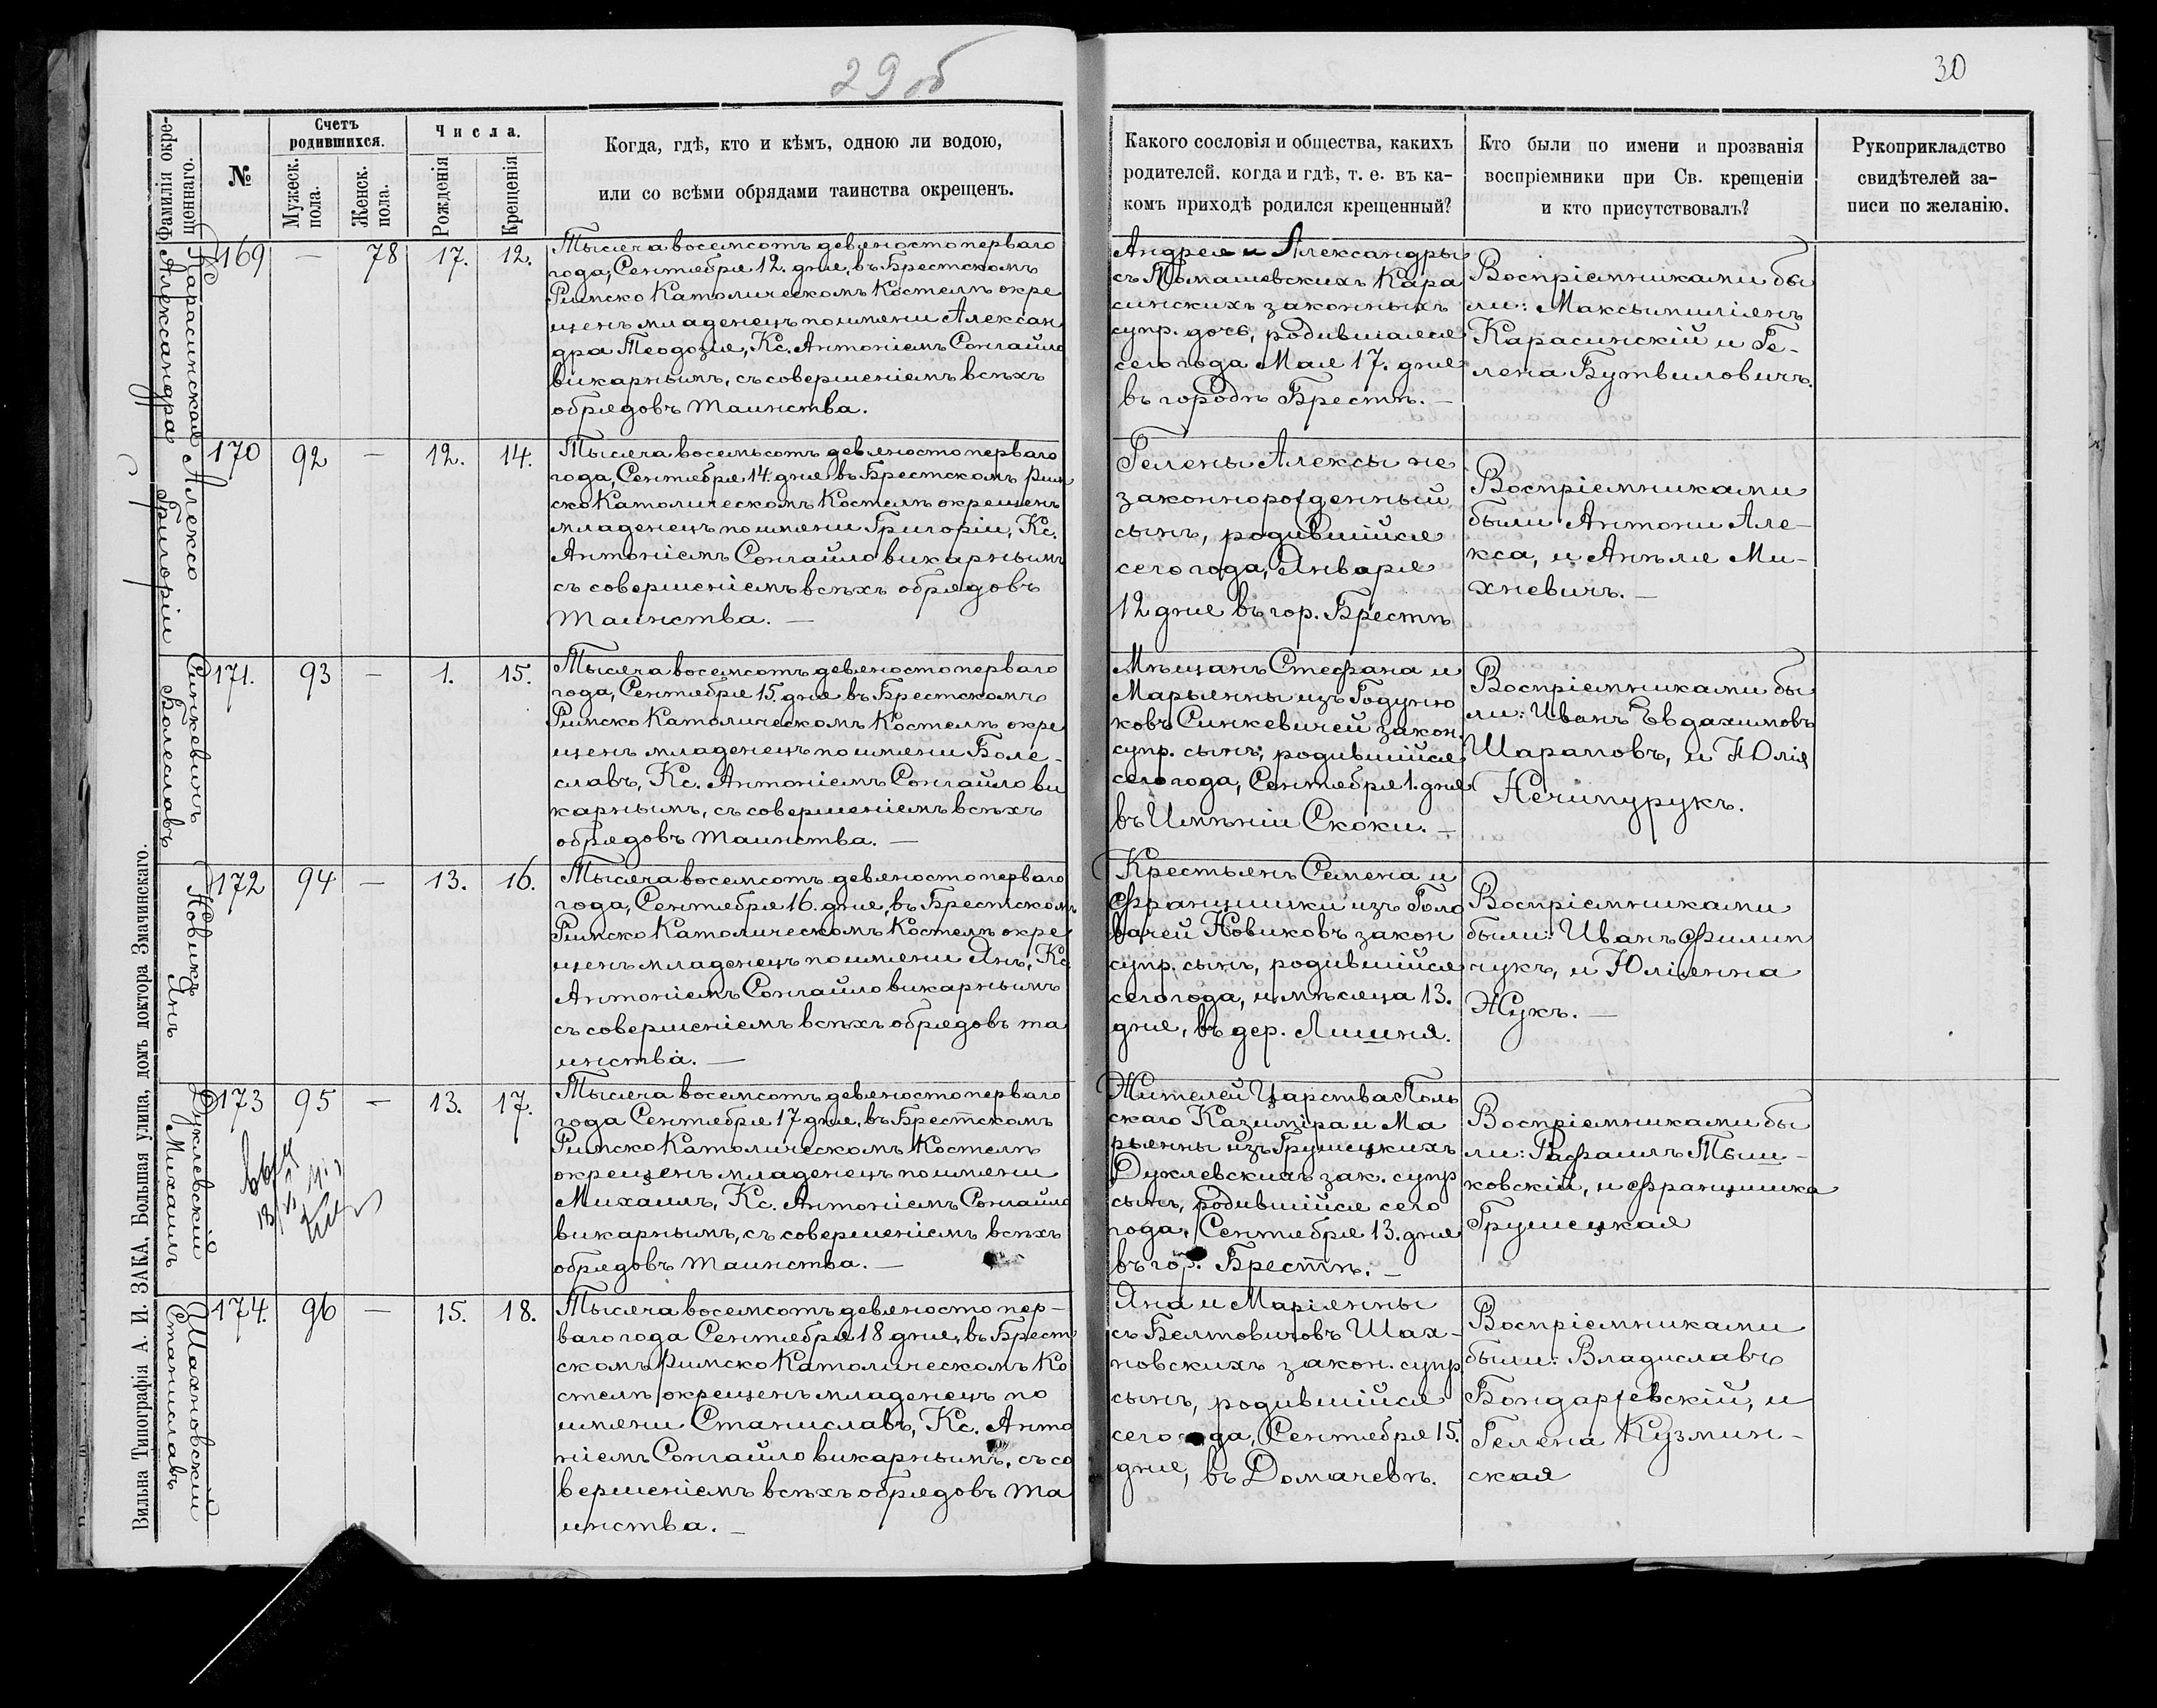 29 об
30
Фамилія окре-
щеннаго.
№
Счетъ
родившихся.
Мужеск.
пола.
Женск.
пола.
Числа.
Рожденія
Крещенія
Когда, гдѣ, кто и кѣмъ, одною ли водою,
или со всѣми обрядами таинства окрещенъ.
Какого сословія и общества, какихъ
родителей, когда и гдѣ, т. е. въ ка-
комъ приходѣ родился крещенный?
Кто были по имени и прозванія
воспріемники при Св. крещеніи
и кто присутствовалъ?
Рукоприкладство
свидѣтелей за-
писи по желанію.
Карасинская
Александра
169 — 78 17. 12.
Тысяча восемсотъ девяносто перваго
года, Сентября 12. дня, въ Брестскомъ
Римско Католическомъ Костелѣ окре
щенъ младенецъ по имени Алексан
дра Теодозія, Кс. Антоніемъ Сонгайло
викарнымъ, съ совершеніемъ всѣхъ
обрядовъ таинства.
Андрея и Александры
съ Томашевскихъ Кара
синскихъ законныхъ
супр. дочь, родившаяся
сего года Мая 17. дня
въ городѣ Брестѣ. —
Воспріемниками бы
ли: Максымиліянъ
Карасинскій и Ге-
лена Бутвиловичъ.
Алексо
Григорій
170 92 — 12. 14.
Тысяча восемьсотъ девяносто перваго
года, Сентября 14. дня въ Брестскомъ Рим
ско Католическомъ Костелѣ окрещенъ
младенецъ по имени Григорій, Кс.
Антоніемъ Сонгайло викарнымъ
съ совершеніемъ всѣхъ обрядовъ
таинства. —
Гелены Алексы не
законнорожденный
сынъ, родившійся
сего года, Января
12 дня въ гор. Брестѣ
Воспріемниками
были Антони Але-
кса, и Анѣля Ми-
хневичъ. —
Синкевичъ
Болеславъ
171. 93 — 1. 15.
Тысяча восемсотъ девяносто перваго
года, Сентября 15. дня въ Брестскомъ
Римско Католическомъ Костелѣ окре
щенъ младенецъ по имени Боле-
славъ, Кс. Антоніемъ Сонгайло ви
карнымъ, съ совершеніемъ всѣхъ
обрядовъ таинства. —
Мѣщанъ Стефана и
Марьянны изъ Годуню
ковъ Синкевичей закон.
супр. сынъ, родившійся
сего года, Сентября 1. дня
въ Имѣніи Скоки. —
Воспріемниками бы
ли: Иванъ Евдахимовъ
Шараповъ, и Юлія
Нечипурукъ.
Новикъ
Янъ
172 94 — 13. 16.
Тысяча восемсотъ девяносто перваго
года, Сентября 16. дня, въ Брестскомъ
Римско Католическомъ Костелѣ окре
щенъ младенецъ по имени Янъ, Кс.
Антоніемъ Сонгайло викарнымъ
съ совершеніемъ всѣхъ обрядовъ та
инства. —
Крестьянъ Семена и
Францишки изъ Голо
вачей Новиковъ закон
супр. сынъ, родившійся
сего года, и мѣсяца 13.
дня, въ дер. Лишня.
Воспріемниками
были: Иванъ Филип
чукъ, и Юліянна
Жукъ. —
Дуклевскій
Михаилъ
173 95 — 13. 17.
Тысяча восемсотъ девяносто перваго
года Сентября 17 дня, въ Брестскомъ
Римско Католическомъ Костелѣ
окрещенъ младенецъ по имени
Михаилъ, Кс. Антоніемъ Сонгайло
викарнымъ, съ совершеніемъ всѣхъ
обрядовъ таинства. —
Жителей Царства Поль
скаго Казиміра и Ма
рьянны изъ Грушецкихъ
Дуклевскихъ зак. супр
сынъ, родившійся сего
года, Сентября 13. дня
въ гор. Брестѣ. —
Воспріемниками бы
ли: Рафаилъ Тыш-
ковскій, и Францишка
Грушецкая
Шахновскій
Станиславъ
174. 96 — 15. 18.
Тысяча восемсотъ девяносто пер-
ваго года Сентября 18 дня, въ Брест
скомъ Римско Католическомъ Ко
стелѣ окрещенъ младенецъ по
имени Станиславъ, Кс. Анто
ніемъ Сонгайло викарнымъ, съ со
вершеніемъ всѣхъ обрядовъ та
инства. —
Яна и Маріянны
съ Белтовичовъ Шах-
новскихъ закон. супр
сынъ, родившійся
сего года, Сентября 15.
дня, въ Домачевѣ.
Воспріемниками
были: Владиславъ
Бондаржевскій, и
Гелена Кузмин-
ская
Вильна Типографія А. И. ЗАКА, Большая улица, домъ доктора Змачинскаго.